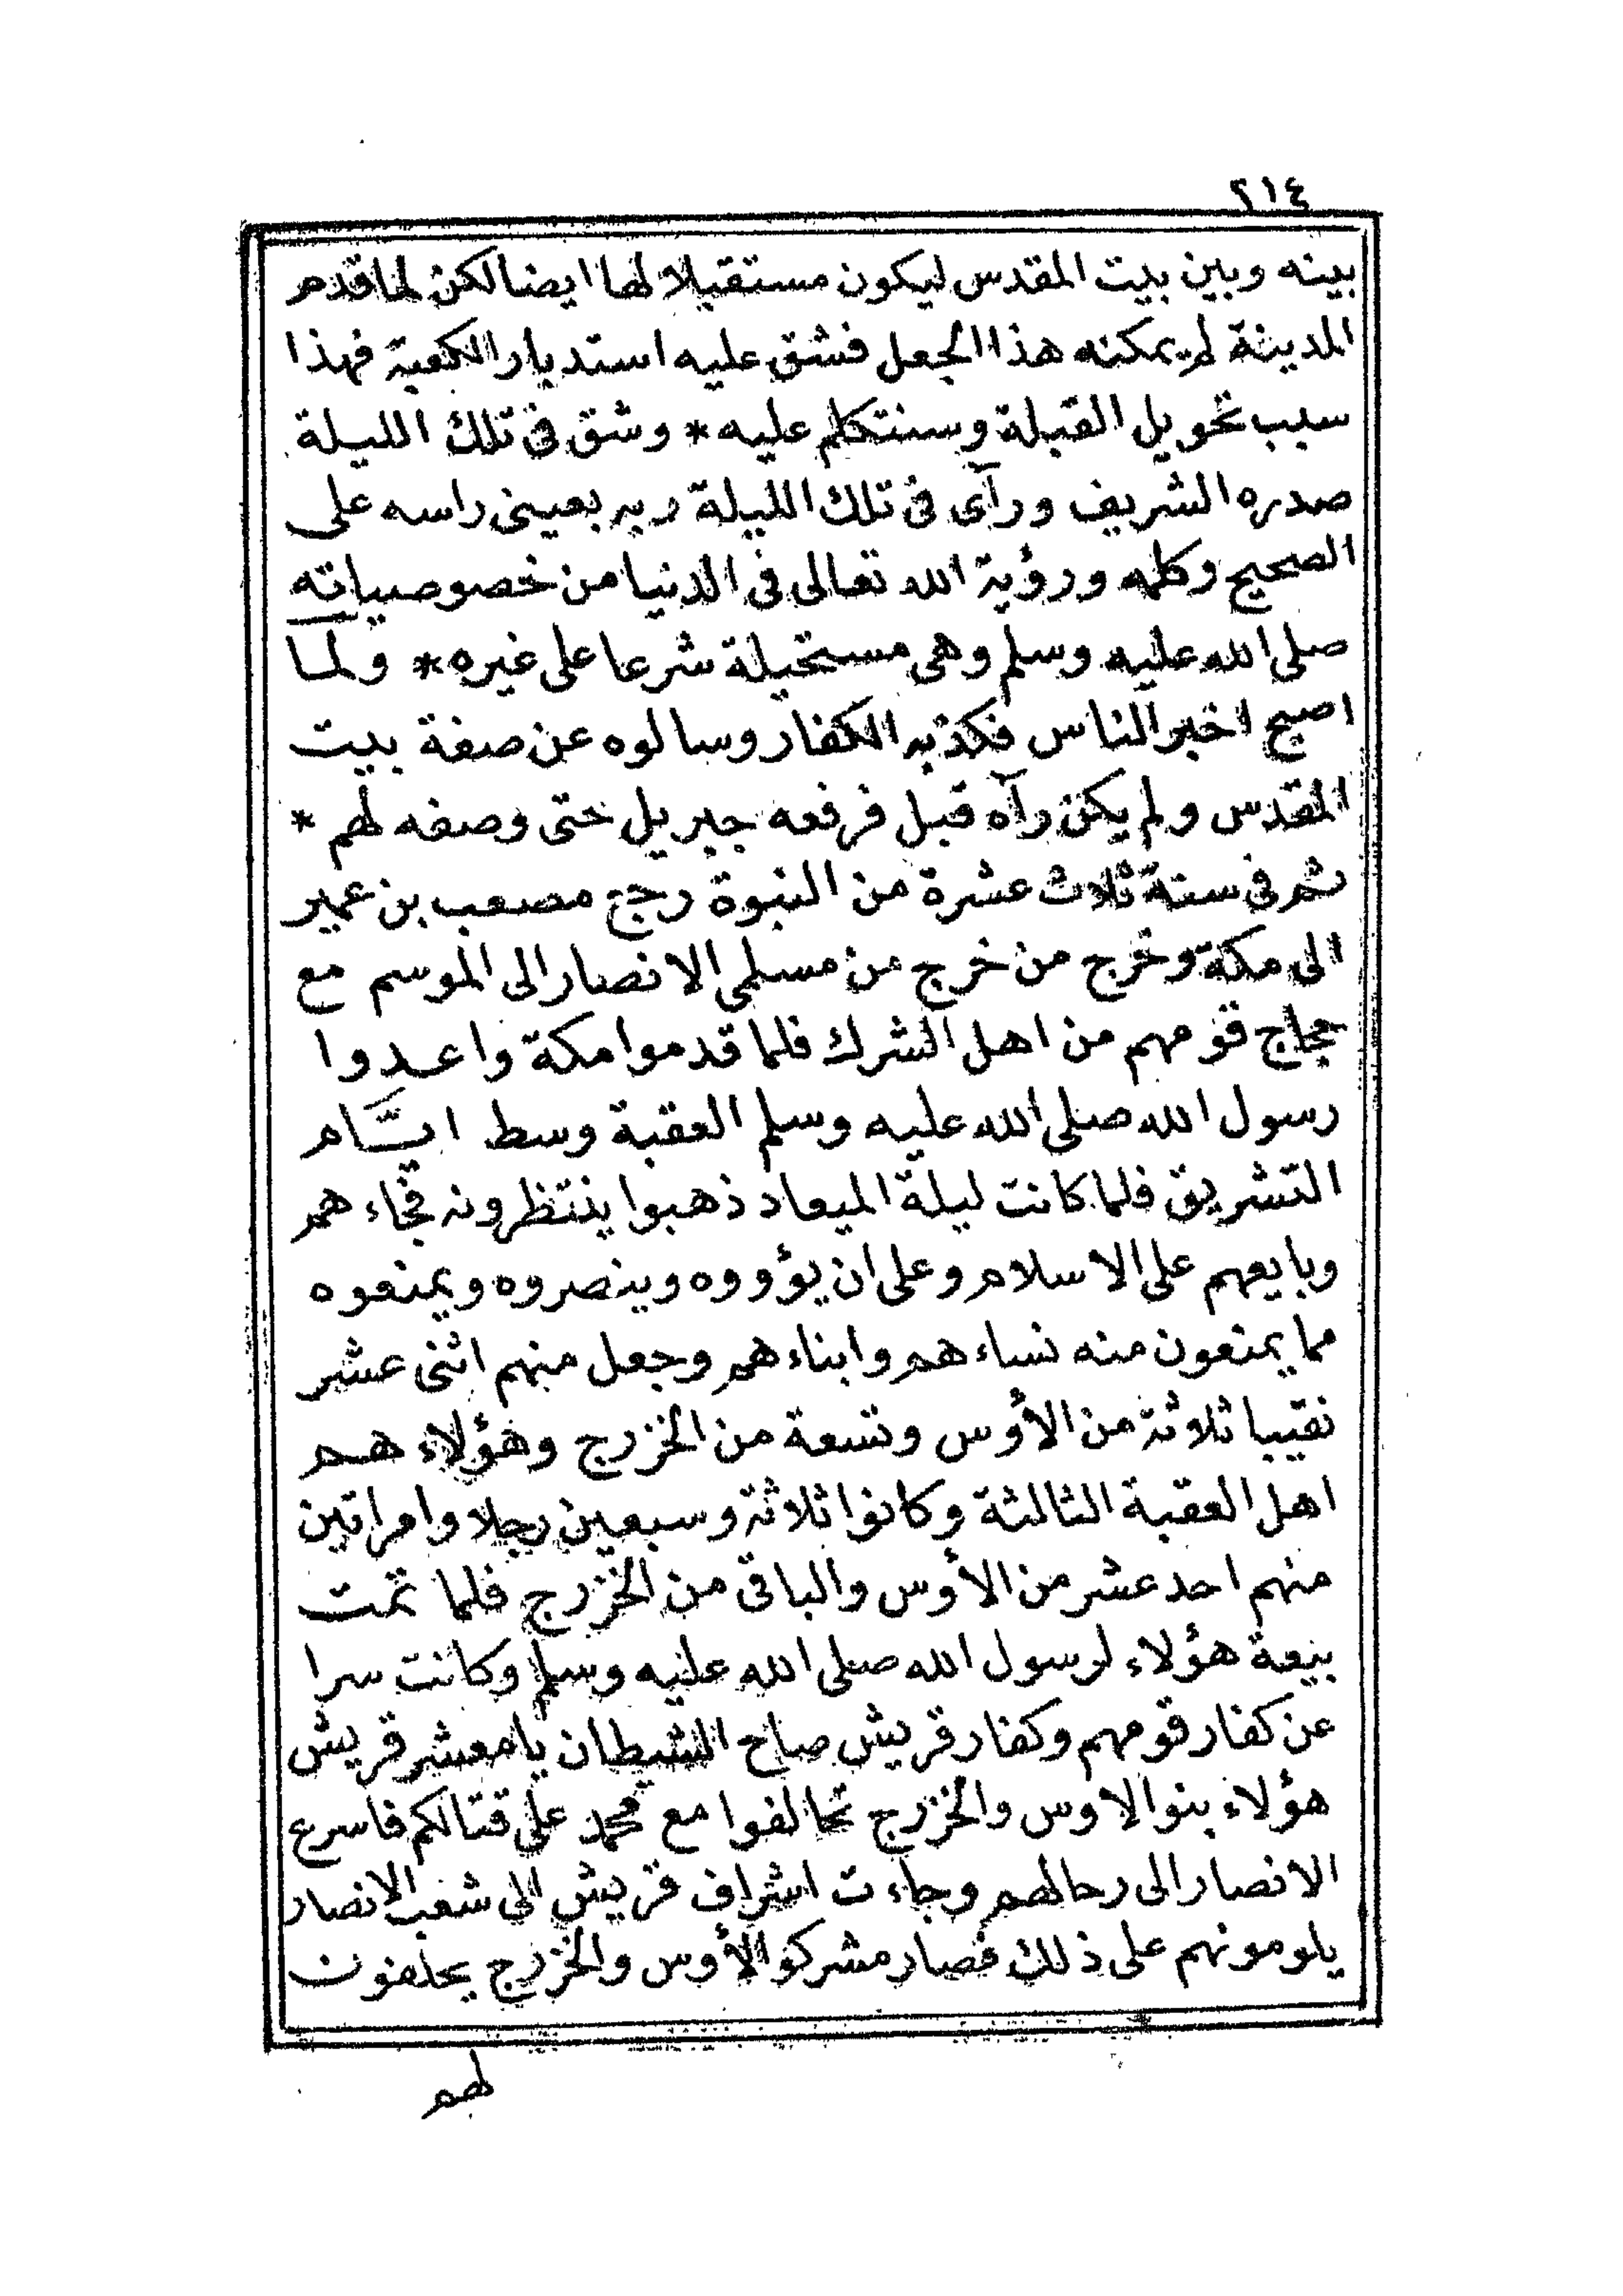 ٢١٤
بينه وبين بيت المقدس ليكون مستقبلا لها ايضا لكن لما قدم
المدينة لم يمكنه هذا الجعل فشق عليه استدبار الكعبة فهذا
سبب تحويل القبلة وسنتكلم عليه * وشق فى تلك الليلة
صدره الشريف ورآى فى تلك الليلة ربه بعينى راسه على
الصحيح وكلمه ورؤية الله تعالى فى الدنيا من خصوصياته
صلى الله عليه وسلم وهى مستحيلة شرعا على غيره * ولما
اصبح اخبر الناس فكذبه الكفار وسالوه عن صفة بيت
المقدس ولم يكن رآه قبل فرفعه جبريل حتى وصفه لهم *
ثم فى سنة ثلاث عشرة من النبوة رجع مصعب بن عمير
الى مكة وخرج من خرج من مسلمى الانصار الى الموسم مع
حجاج قومهم من اهل الشرك فلما قدموا مكة واعدوا
رسول الله صلى الله عليه وسلم العقبة وسط ايَّام
التشريق فلما كانت ليلة الميعاد ذهبوا ينتظرونه فجاءهم
وبايعهم على الاسلام وعلى ان يؤووه وينصروه ويمنعوه
مما يمنعون منه نساءهم وابناءهم وجعل منهم اثنى عشر
نقيبا ثلاثة من الأوس وتسعة من الخزرج وهؤلاء هم
اهل العقبة الثالثة وكانوا ثلاثة وسبعين رجلا وامراتين
منهم احد عشر من الأوس والباقى من الخزرج فلما تمت
بيعة هؤلاء لرسول الله صلى الله عليه وسلم وكانت سرا
عن كفار قومهم وكفار قريش صاح الشيطان يا معشر قريش
هؤلاء بنو الاوس والخزرج تحالفوا مع محمد على قتالكم فاسرع
الانصار الى رحالهم وجاءت اشراف قريش الى شعب الانصار
يلومونهم على ذلك فصار مشركو الأوس والخزرج يحلفون
لهم